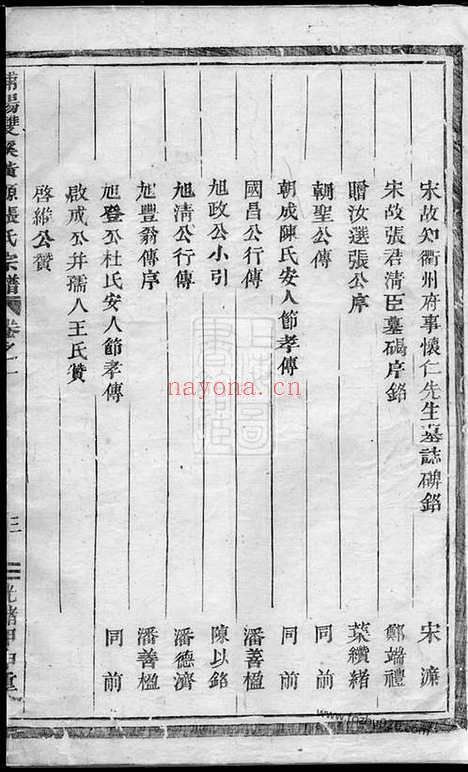 宋故知衢州府事懷仁先生墓誌碑銘 宋濂
宋故張君淸臣墓碣序銘 鄭端禮
贈汝選張公序 葉纘緒
朝聖公傳 同前
朝成陳氏安人節孝傳 同前
國昌公行傳 潘善楹
旭政公小引 陳以銘
旭淸公行傳 潘德濟
旭豐翁傳序 潘善楹
旭登公杜氏安人節孝傳 同前
啟戒公并孺人王氏贊
啓維公贊
浦陽雙溪黃源張氏宗譜 卷之一 三 光緒甲申重
nayona.cn